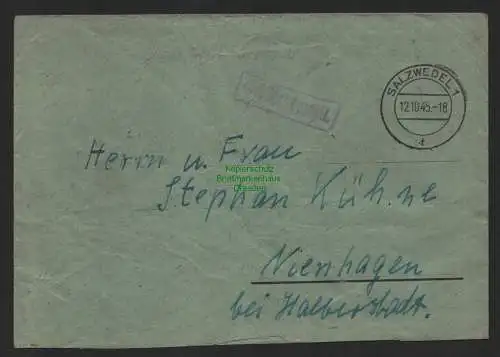 SALZWEDEL 1
12.10.45.-18
d
Herrn u. Frau
Kopierschutz
Briefmarkenhaus
Dresden
Stephan Kühne
Nienhagen
bei Halberstadt.